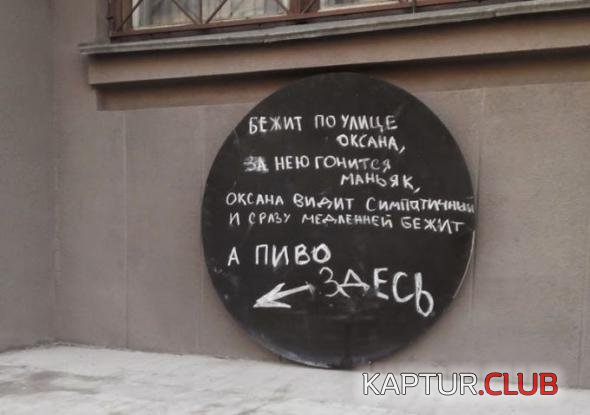 БЕЖИТ ПО УЛИЦЕ
ОКСАНА,
ЗА НЕЮ ГОНИТСЯ
МАНЬЯК,
ОКСАНА ВИДИТ СИМПАТИЧНЫЙ
И СРАЗУ МЕДЛЕННЕЙ БЕЖИТ
А ПИВО
ЗДЕСЬ
KAPTUR.CLUB